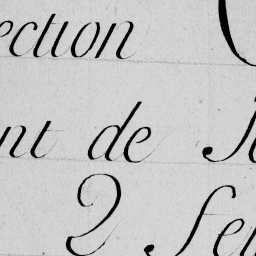 ection
nt de
2 Se